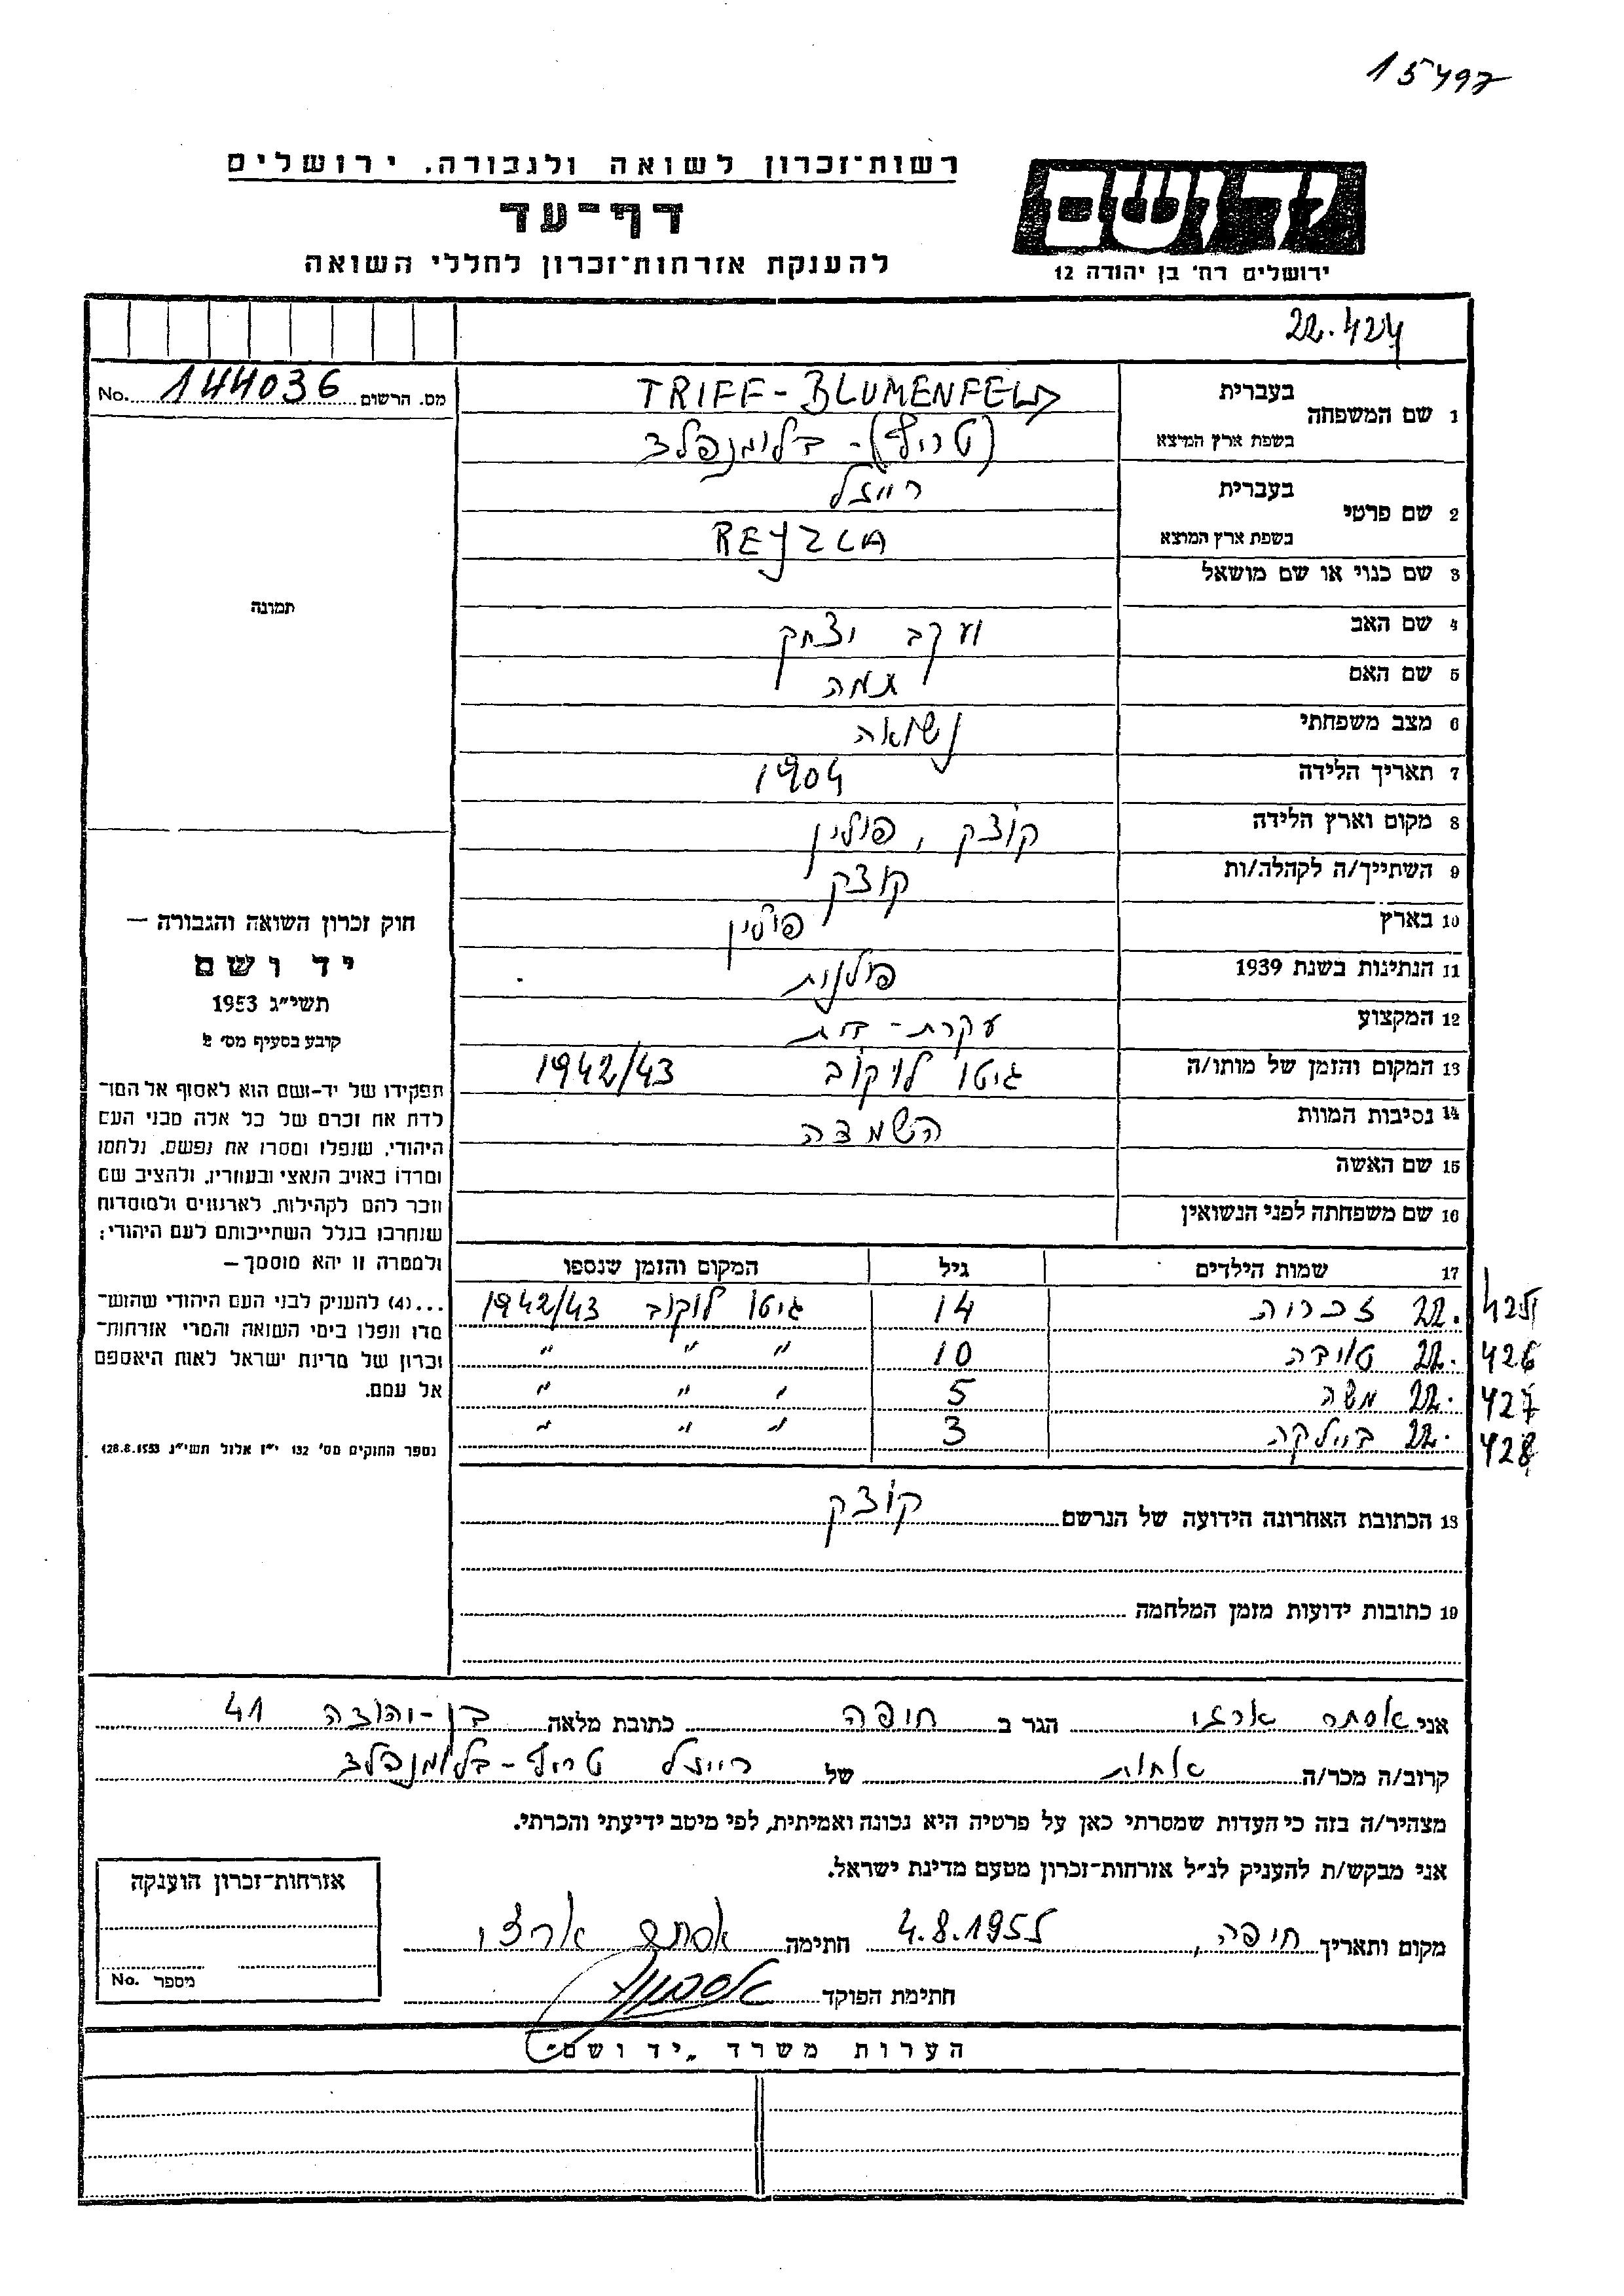 15497
רשות־זכרון לשואה ולגבורה. ירושלים
דף־עד
להענקת אזרחות־זכרון לחללי השואה
יד ושם
ירושלים רח׳ בן יהודה 12
22.424
מס. הרשום 144036 No.
1 שם המשפחה בעברית TRIFF-BLUMENFELD
בשפת ארץ המוצא (טריף)-בלומנפלד
2 שם פרטי בעברית רייזל
בשפת ארץ המוצא REYZLA
3 שם כנוי או שם מושאל
4 שם האב יעקב יצחק
5 שם האם
6 מצב משפחתי נשואה
7 תאריך הלידה 1904
8 מקום וארץ הלידה קוצק, פולין
9 השתייך/ה לקהלה/ות קוצק
10 בארץ פולין
11 הנתינות בשנת 1939 פולנית
12 המקצוע עקרת-בית
13 המקום והזמן של מותו/ה גיטו לוקוב 1942/43
14 נסיבות המוות השמדה
15 שם האשה
16 שם משפחתה לפני הנשואין
17 שמות הילדים גיל המקום והזמן שנספו
425 22. זכריה 14 גיטו לוקוב 1942/43
426 22. טוידה 10 " " "
427 22. משה 5 " " "
428 22. ביילקה 3 " " "
18 הכתובת האחרונה הידועה של הנרשם קוצק
19 כתובות ידועות מזמן המלחמה
תמונה
חוק זכרון השואה והגבורה —
יד ושם
תשי״ג 1953
קובע בסעיף מס׳ 2
תפקידו של יד-ושם הוא לאסוף אל המו־
לדת את זכרם של כל אלה מבני העם
היהודי, שנפלו ומסרו את נפשם, נלחמו
ומרדו באויב הנאצי ובעוזריו, ולהציב שם
וזכר להם לקהילות, לארגונים ולמוסדות
שנחרבו בגלל השתייכותם לעם היהודי;
ולמטרה זו יהא מוסמך —
...(4) להעניק לבני העם היהודי שהוש־
מדו ונפלו בימי השואה והמרי אזרחות־
זכרון של מדינת ישראל לאות היאספם
אל עמם.
(ספר החוקים מס׳ 132 י״ז אלול תשי״ג 28.8.1953)
אני אסתר ארצי הגר ב חיפה כתובת מלאה בן-יהודה 41
קרוב/ה מכר/ה אחות של רייזל טריף-בלומנפלד
מצהיר/ה בזה כי העדות שמסרתי כאן על פרטיה היא נכונה ואמיתית, לפי מיטב ידיעתי והכרתי.
אני מבקש/ת להעניק לנ״ל אזרחות-זכרון מטעם מדינת ישראל.
מקום ותאריך חיפה, 4.8.1955 חתימה אסתר ארצי
חתימת הפוקד
אזרחות-זכרון הוענקה
מספר No.
הערות משרד „יד ושם"